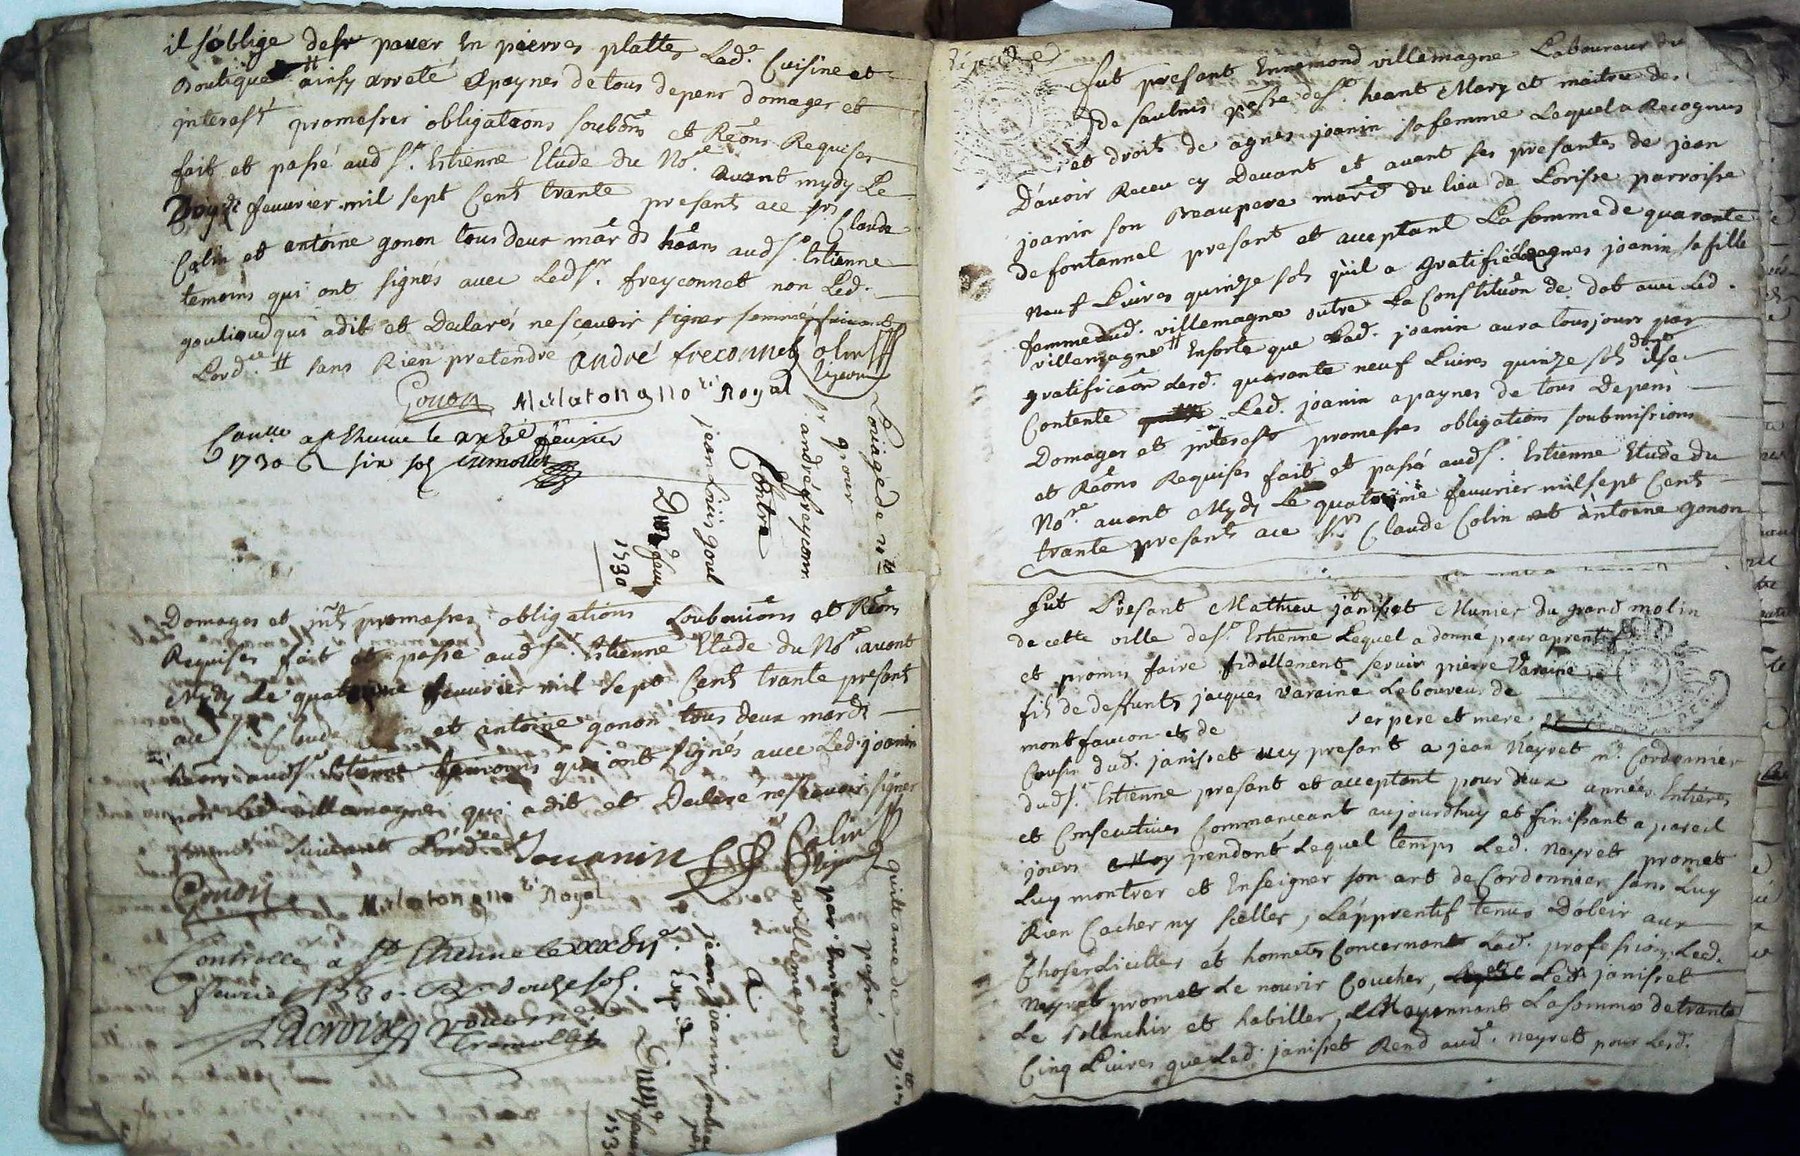 il s'oblige de paver en pierres plattes Lad.e Cuisine et
Boutique ainsy arreté apaynes de tous depens domages et
interests promesses obligations soubons et Reons Requises
fait et passé aud St. Estienne Etude du No.re avant mydy Le
feuvrier mil sept Cents trante presants ace Srs Claude
Colin et antoine gonon tous deux mards heans aud St. Estienne
temoins qui ont signés avec Led Sr. freyconnet non Led.
qui adit et Declaré nescavoir signer sommé suivant
Lord.ce # sans Rien pretendre andré freconnet Colin
Gonon No.re Royal
Con.lle a St Etienne le fevrier
1730 Rx six sols
Louage de
pour
Sr. andré freyconnet
Contre
jean Louis
Du feuv
1730
Domages et promesses obligations soubmions et Reons
Requises fait et passé aud St. Estienne Etude du No.re avant
Mydy Le quatorzième feuvrier mil sept Cents trante presants
ace Sr. Claude Colin et antoine gonon tous deux mards
heans aud St. Estienne temoins qui ont signés avec Led. joanin
non Led villemagne qui adit et Declaré nescavoir signer
suivant Lord.ce Jouanin Colin
Gonon No.re Royal
Controllé a St Etienne le
fevrier 1730. Rx douze sols.
Lacroix
quittance de
passé
par Ennemond
villemagne
A
jean joanin son beau
père
Du feuv
1730
fut presant Ennemond villemagne Laboureur du
de st. heant Mary et maitre des
et droits de agnes joanin safemme Lequel a Recognus
Davoir Receu cy Devant et avant ses presantes de jean
joanin son Beaupere march du lieu de Lorisse parroisse
de fontannel presant et acceptant La somme de quarante
neuf Livres quinze sols qu'il a gratifié agnes joanin sa fille
femme dud. villemagne outre La Constitution de dot avec Led.
villemagne # Ensorte que Lad. joanin aura tousjours par
gratification Lesd. quarante neuf Livres quinze sols dont il se
Contente Led. joanin apaynes de tous Depens
Domages et interests promesses obligations soubmissions
et Reons Requises fait et passé aud St. Estienne Etude du
No.re avant Mydy Le quatorzième feuvrier mil sept Cents
trante presants ace Srs Claude Colin et antoine gonon
fut Présant Mathieu janisset Munier du grand molin
de cette ville de St. Estienne Lequel a donné pour aprentif
et promis faire fidellement servir pierre Varaine
fils de deffunts jacques Varaine Laboureur de
montfaucon et de ses pere et mere
Cousin dud. janisset icy presant a jean Neyret me. Cordonnier
dud St. Estienne presant et acceptant pour deux années Entières
et Consecutives Commanceant aujourdhuy et finissant a pareil
jours pendant Lequel temps Led. neyret promet
Luy montrer et Enseigner son art de Cordonnier sans Luy
Rien Cacher ny sceller, L'apprentif tenus Dobeir aux
Choses Licittes et honnetes Concernant Lad. profession Led.
Neyret promet Le nourir Coucher, Led janisset
Le Blanchir et habiller, Moyennant La somme de trante
Cinq Livres que Led. janisset Rend aud. neyret pour Lesd.